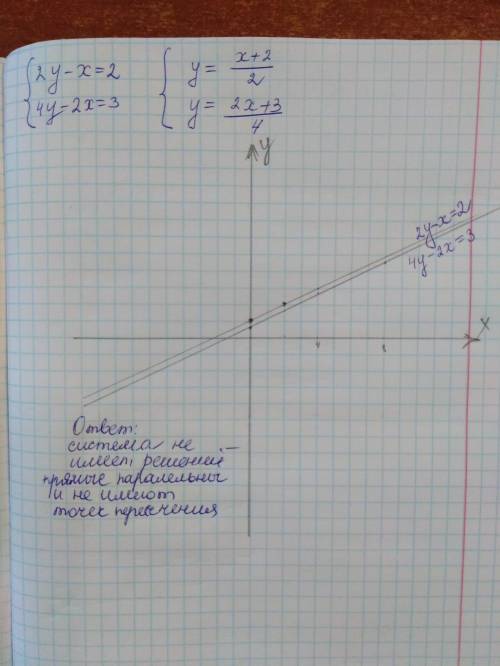 {2y-x=2 { y = (x+2)/2
{4y-2x=3 { y = (2x+3)/4
y
2y-x=2
4y-2x=3
x
Ответ:
система не
имеет решений —
прямые паралельны
и не имеют
точек пересечения